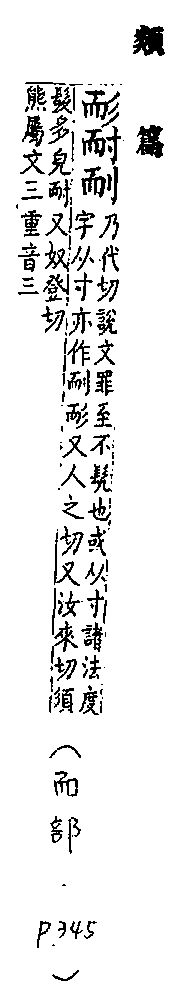 類篇
耏耐
乃代切說文罪至不髡也或从寸諸法度
字从寸亦作耏又人之切又汝來切須
髮多皃耐又奴登切
熊屬文三重音三
(而部．P.345)